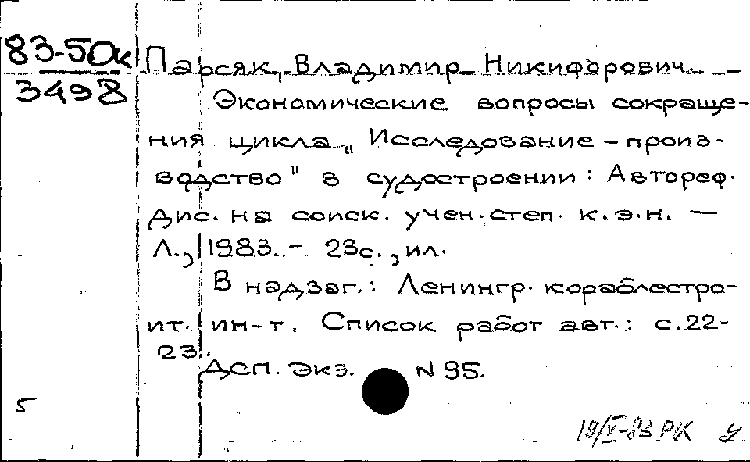 83-50к
3498
Парсяк, Владимир Никифорович.
Экономические вопросы сокраще-
ния цикла „Исследование – произ-
водство" в судостроении: Автореф.
дис. на соиск. учен. степ. к.э.н. —
Л., 1983. – 23с., ил.
В надзаг.: Ленингр. кораблестро-
ит. ин-т. Список работ авт.: с.22-
23.
ДСП. Экз. N 95.
5
18/V-83 РК